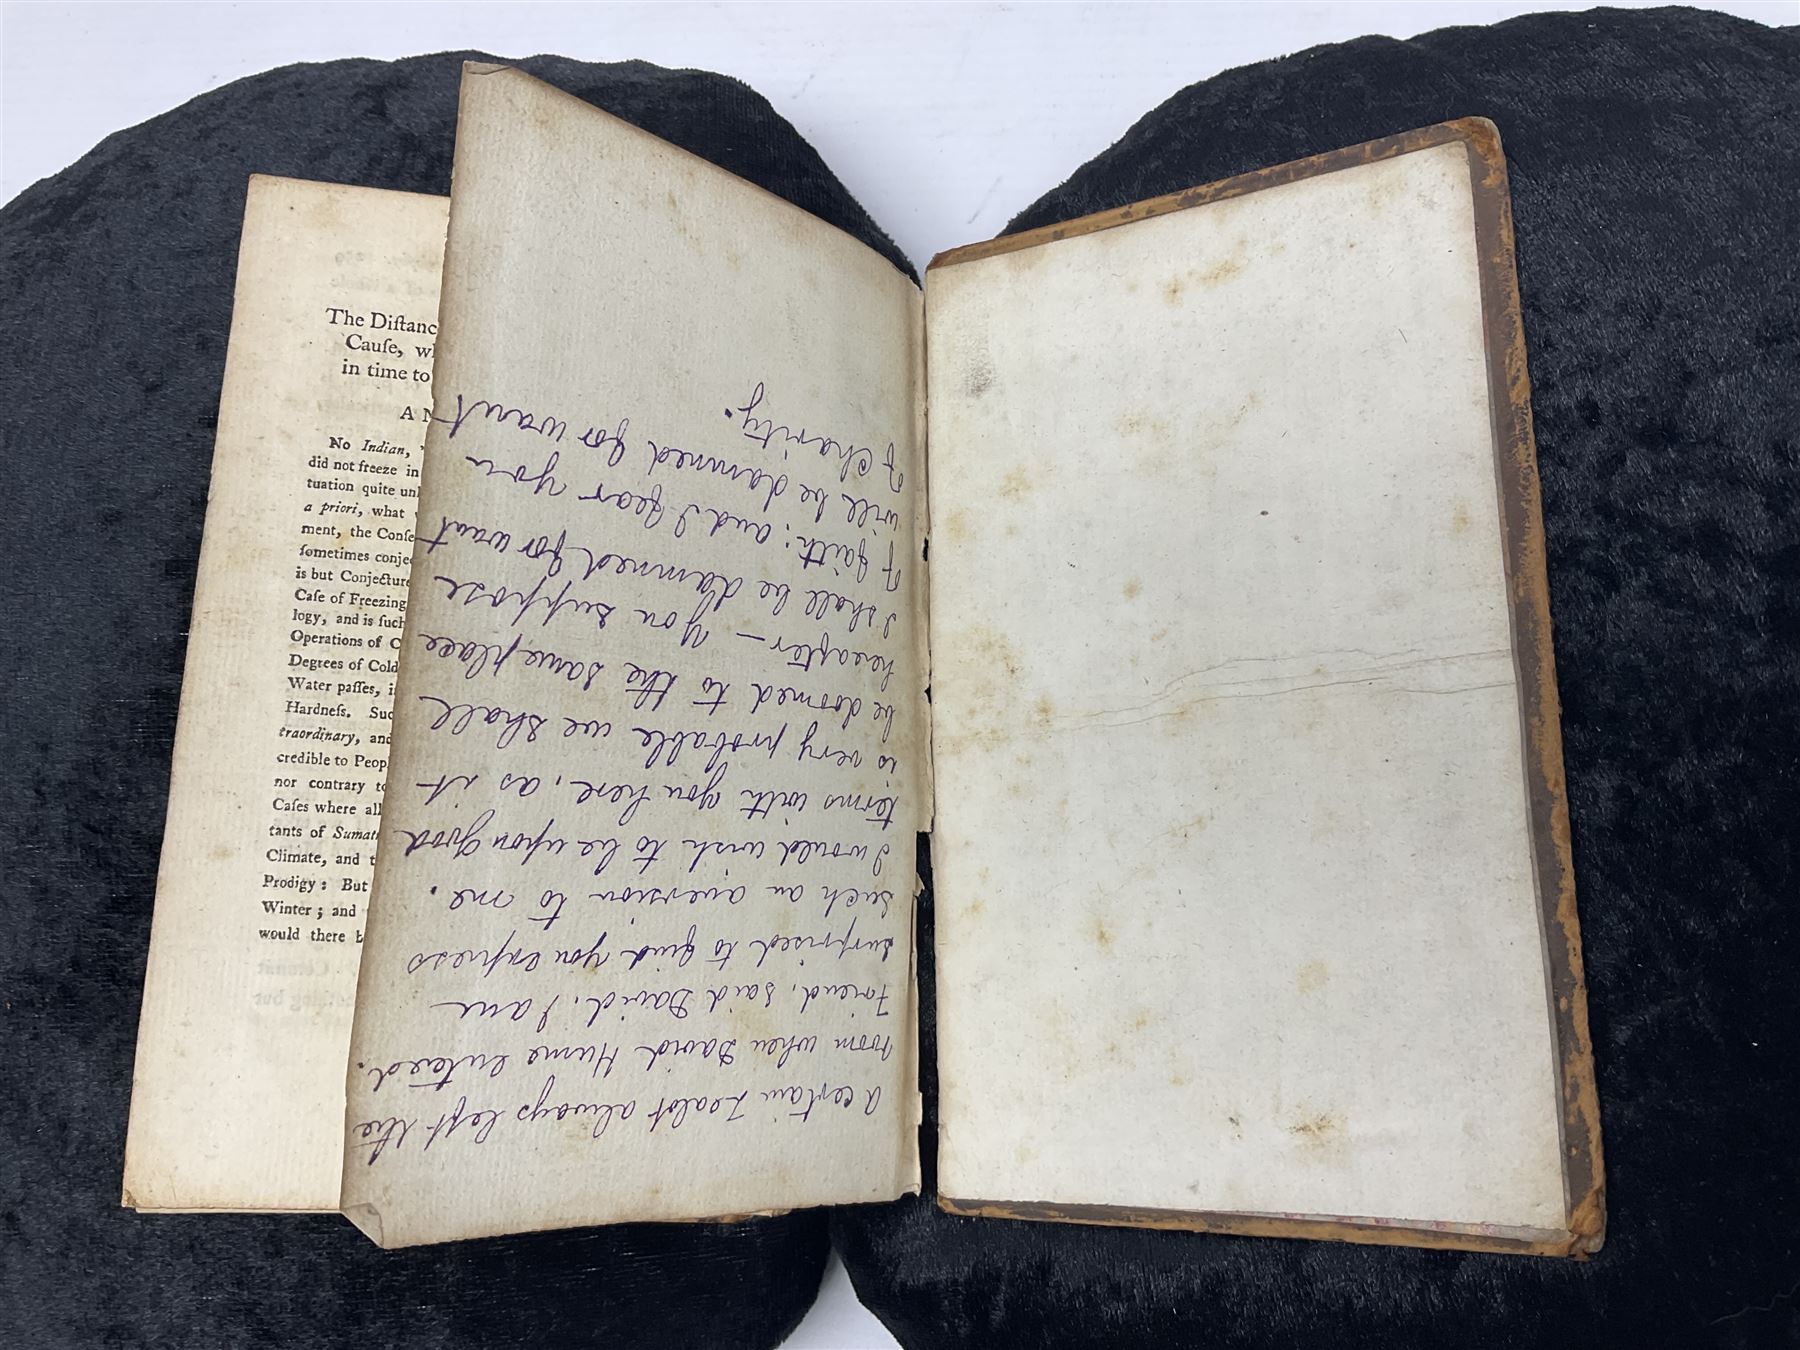 The Diſtanc
Cauſe, wh
in time to
A N
No Indian,
did not freeze in
tuation quite unl
a priori, what
ment, the Conſe
ſometimes conjec
is but Conjecture
Caſe of Freezing
logy, and is ſuch
Operations of C
Degrees of Cold
Water paſſes, i
Hardneſs. Suc
traordinary, and
credible to Peop
nor contrary to
Caſes where all
tants of Sumat
Climate, and t
Prodigy: But
Winter; and
would there b
A certain Zealot always left the
room when David Hume entered.
Friend, said David, I am
surprised to find you express
such an aversion to me.
I would wish to be upon good
terms with you here, as it
is very probable we shall
be doomed to the same place
hereafter — You suppose
I shall be damned for want
of faith: and I fear you
will be damned for want
of charity.